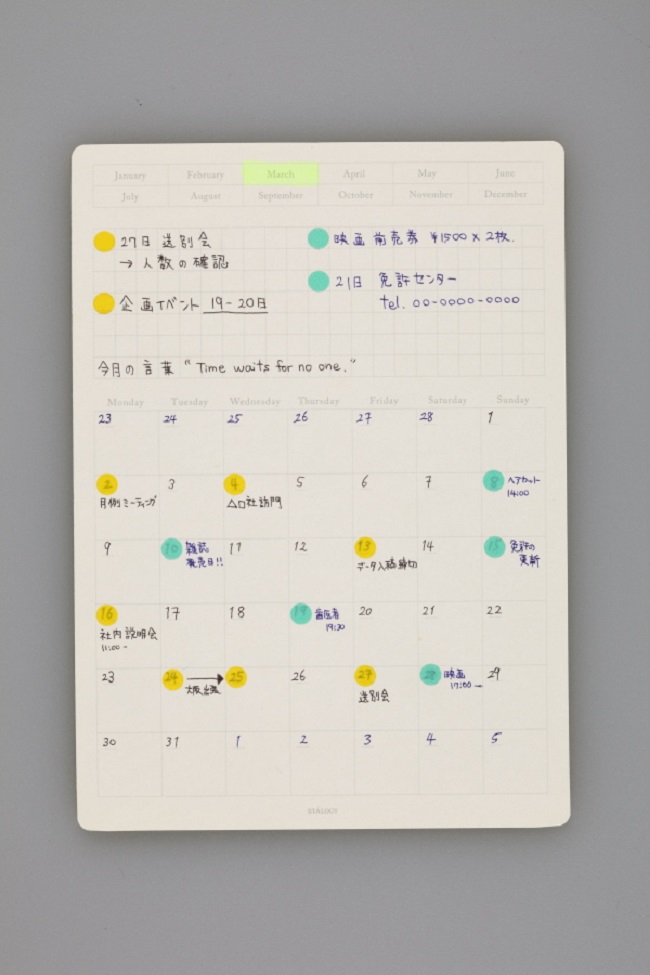 January February March April May June
July August September October November December
27日 送別会
→ 人数の確認
企画イベント 19-20日
映画 前売券 ¥1500×2枚.
21日 免許センター
tel. 00-0000-0000
今月の言葉 "Time waits for no one."
Monday Tuesday Wednesday Thursday Friday Saturday Sunday
23 24 25 26 27 28 1
2 3 4 5 6 7 8 ヘアカット
14:00
月例ミーティング △□社訪問
9 10 雑誌 11 12 13 14 15 免許の
発売日!! 更新
データ入稿締切
16 17 18 19 歯医者 20 21 22
19:30
社内説明会
11:00-
23 24 → 25 26 27 28 映画 29
17:00-
大阪 送別会
30 31 1 2 3 4 5
STÁLOGY